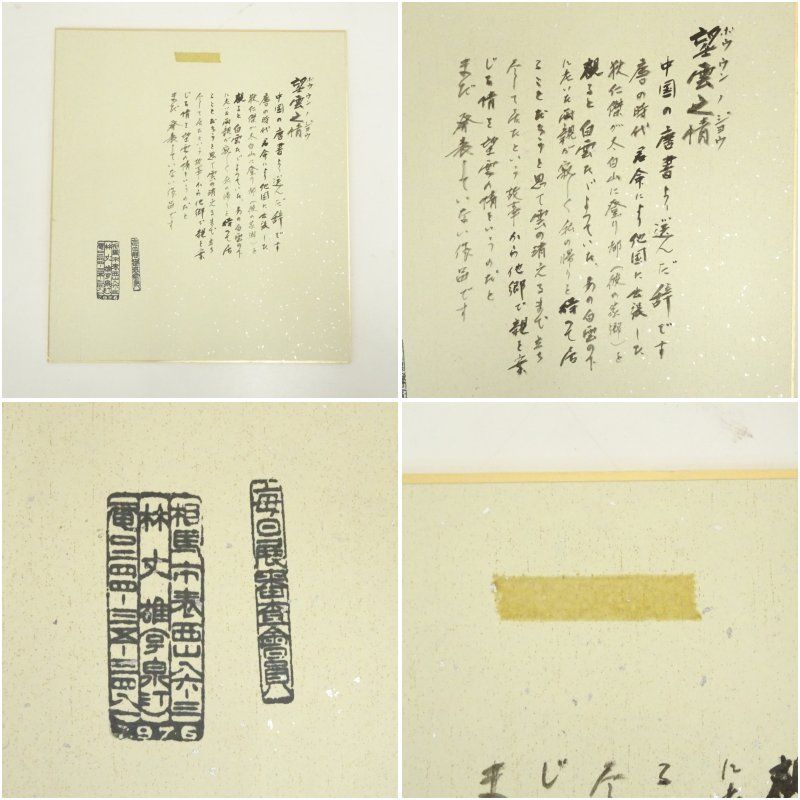 望雲之情
ボウウンノジョウ
中国の唐書より選んだ辞です
唐の時代 君命により他国に出役した
狄仁傑が太白山に登り都(彼の家郷)を
観ると白雲たゞよっていた、あの白雲の下
に老いた両親が寂しく私の帰りを待って居
ることだろうと思って雲の消えるまで立ち
尽して居たという故事から他郷で親を案
じる情を望雲の情というのだと
まだ発表していない作品です
毎日展審査会員
相馬市表西山八六ー三
林丈雄字泉汀
電〇二四四ー三五ー三四八
1976